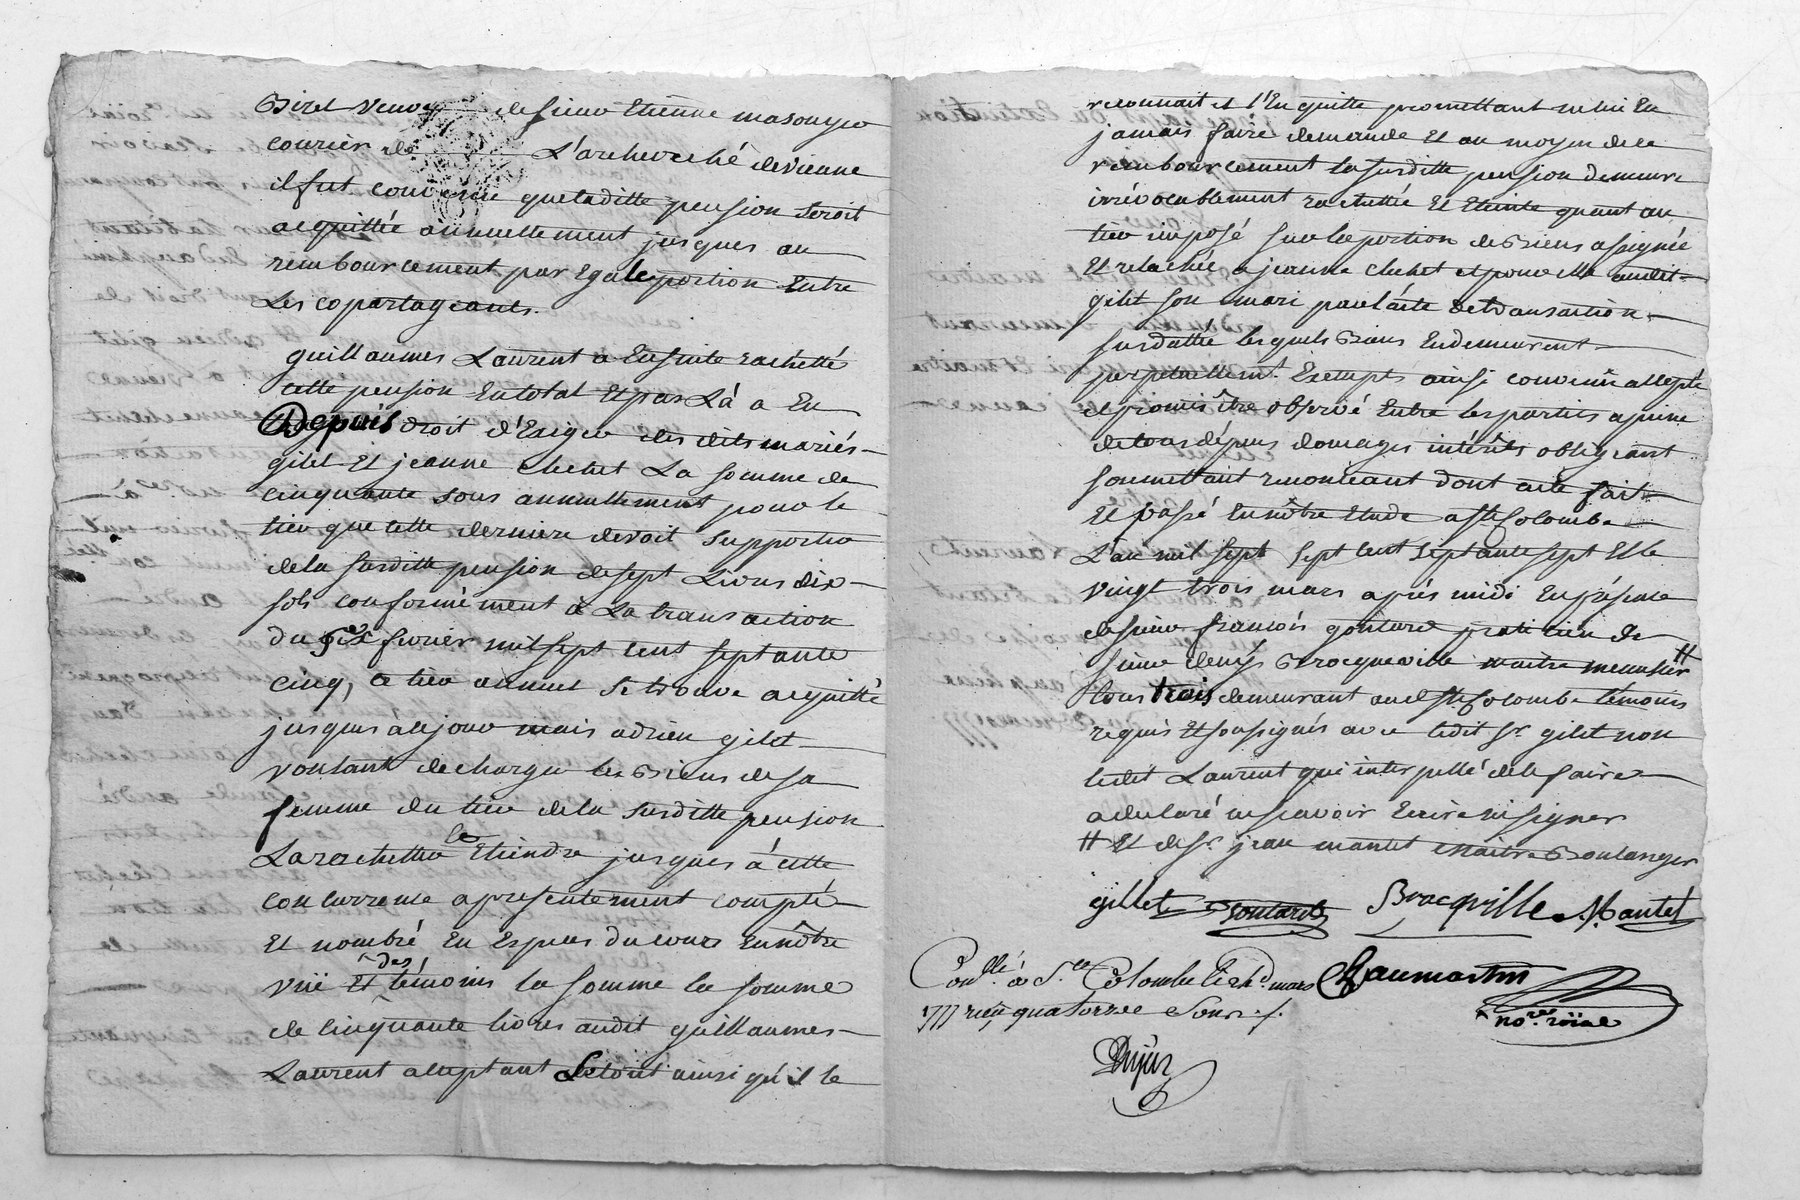 Biret veuve de sieur Etienne masouyer
courier de L'archeveché de vienne
il fut convenue que laditte pension seroit
acquittée annuellement jusques au
rembourcement par Egale portion Entre
Les copartageants.
guillaumes Laurent a Ensuite rachetté
cette pension En total Et par Là a Eu
Depuis droit d'Exiger des dits mariés
gilet Et jeanne chehet La somme de
cinquante sous annuellement pour le
tier que cette derniere devoit supporter
de la susditte pension de sept Livres dix
sols conformément à La transaction
du six fevrier mil sept cent septante
cinq, ce tier annuel se trouve acquitté
jusques à ce jour mais adrien gilet
voulant decharger les Biens de sa
femme du tier de la susditte pension
La rachetter Et Eteindre jusques à cette
concurrense a presentement compté
Et nombré En Especes du cours En nôtre
vuë Et des témoins la somme la somme
de cinquante livres audit guillaumes
Laurent acceptant Le tout ainsi qu'il le
reconnait et l'En quitte promettant ne lui En
jamais faire demande Et au moyen de ce
rembourcement la susditte pension demeure
irrévocablement rachettée Et Eteinte quant au
tier imposé sur les portion de Biens assignée
Et relachée a jeanne chehet et pour elle audit
gilet son mari par l'acte de transaction
susdattée lesquels Biens En demeurent
perpetuellemt. Exempts ainsi convenu accepté
et promis être observé Entre les parties a peine
de tous dépens domages intérêts obligeant
soumettant renonceant dont acte fait
Et passé En nôtre Etude a ste Colombe
L'an mil sept sept cent septante sept Et le
vingt trois mars après midi En présence
de sieur françois goutard praticien de
sieur denis Brocqueville maitre menusier #
tous trois demeurant audit ste Colombe témoins
requis Et soussignés avec ledit sr. gilet non
ledit Laurent qui interpellé de le faire
a declaré ne scavoir Ecrire ni signer
# Et de sr. jean mantet maitre Boulanger
gillet goutard Brocqville Mantet
Conllé à Ste Colombe le 24 d. mars Chaumartin
1777 reçu quatorze sous ./. nore. roïal
Dujar